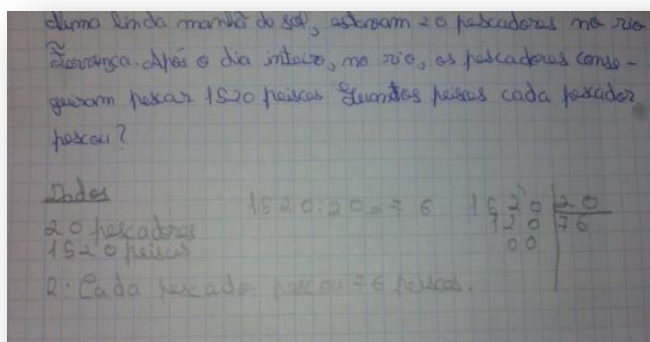 Numa linda manhã de sol, estavam 20 pescadores no rio
Após o dia inteiro, no rio, os pescadores conse-
guiram pescar 1520 peixes Quantos peixes cada pescador
pescou?
Dados
1520:20=76
1520 20
20 pescadores
120 76
1520 peixes
00
R: Cada pescador pescou 76 peixes.